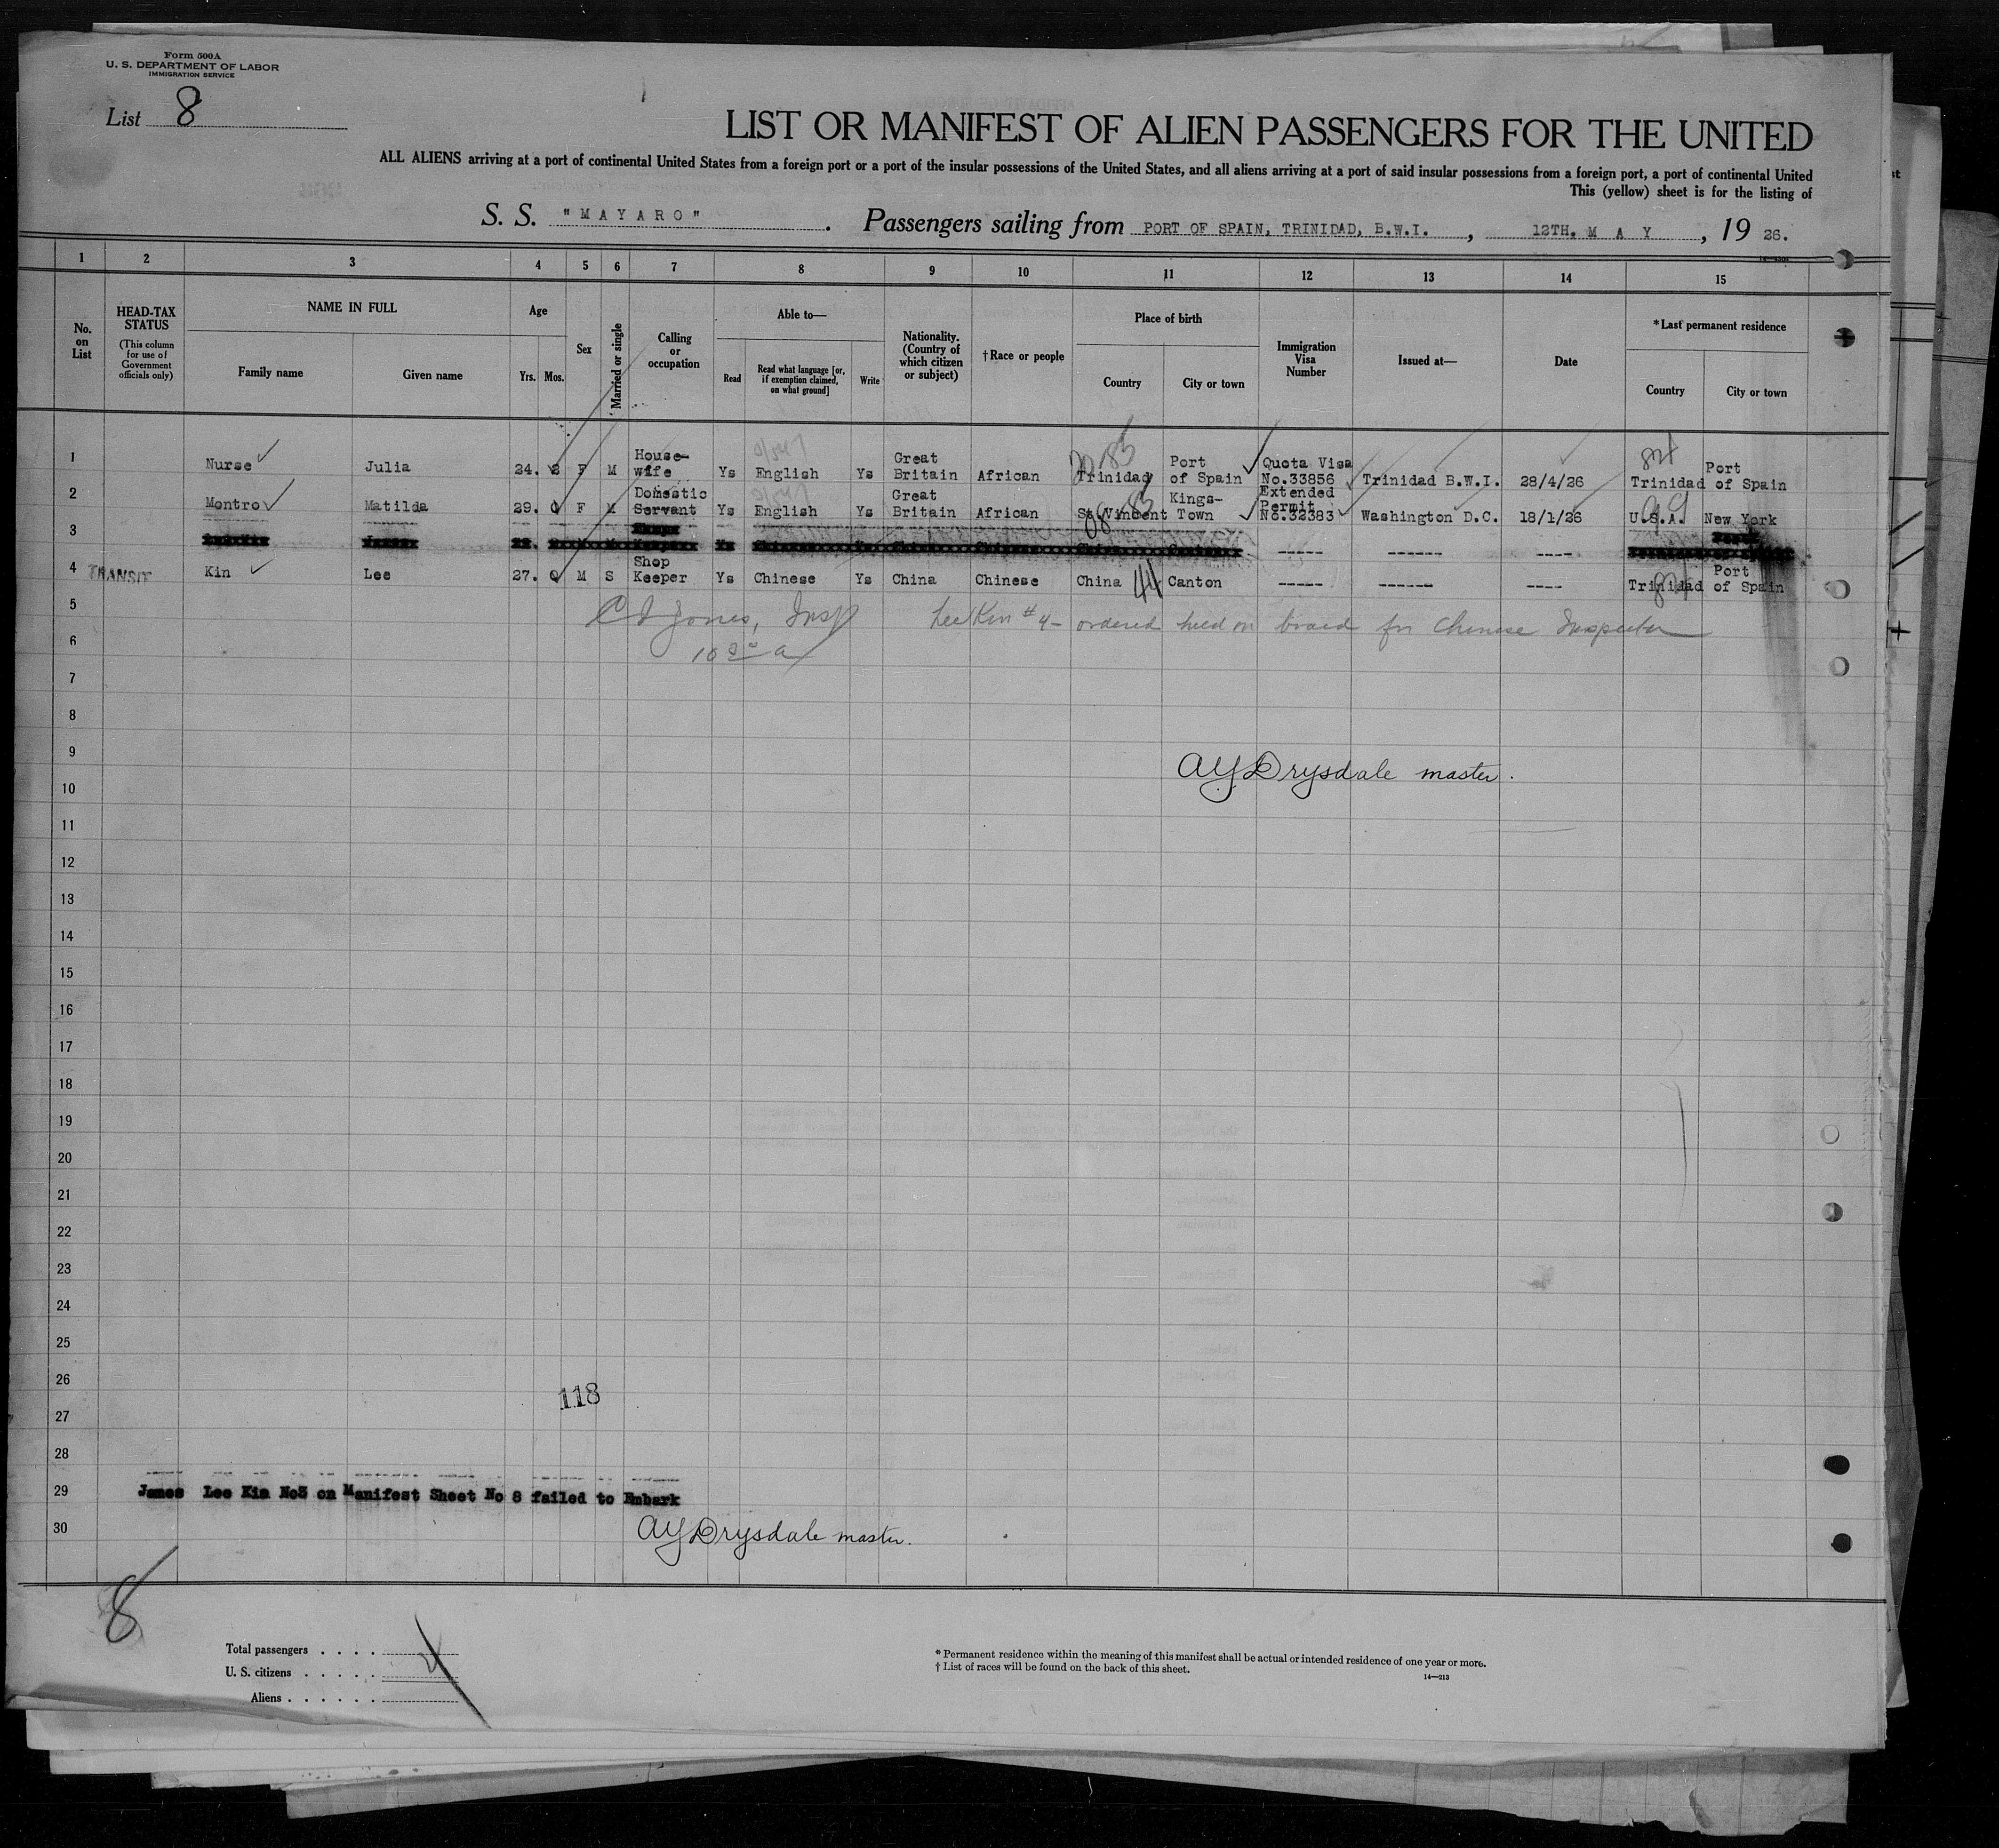 Form 500A
U. S. DEPARTMENT OF LABOR
IMMIGRATION SERVICE
List 8
LIST OR MANIFEST OF ALIEN PASSENGERS FOR THE UNITED
ALL ALIENS arriving at a port of continental United States from a foreign port or a port of the insular possessions of the United States, and all aliens arriving at a port of said insular possessions from a foreign port, a port of continental United
This (yellow) sheet is for the listing of
S. S. "MAYARO" . Passengers sailing from PORT OF SPAIN, TRINIDAD, B.W.I. , 12TH. M A Y , 19 26.
1 2 3 4 5 6 7 8 9 10 11 12 13 14 15
No. on List
HEAD-TAX STATUS
(This column for use of Government officials only)
NAME IN FULL
Family name
Given name
Age
Yrs. Mos.
Sex
Married or single
Calling or occupation
Able to—
Read
Read what language [or, if exemption claimed, on what ground]
Write
Nationality. (Country of which citizen or subject)
†Race or people
Place of birth
Country
City or town
Immigration Visa Number
Issued at—
Date
*Last permanent residence
Country
City or town
1 Nurse Julia 24. F M House-wife Ys English Ys Great Britain African Trinidad Port of Spain Quota Visa No.33856 Trinidad B.W.I. 28/4/26 Trinidad Port of Spain
2 Montro Matilda 29. F M Domestic Servant Ys English Ys Great Britain African St Vincent Kings-Town Extended Permit No.32383 Washington D.C. 18/1/26 U.S.A. New York
3 ----- ------ ----
4 TRANSIT Kin Lee 27. 0 M S Shop Keeper Ys Chinese Ys China Chinese China 44 Canton ----- ------ ---- Trinidad Port of Spain
5 Jones, Insp Lee Kin #4 - ordered held on board for Chinese Inspector
6
7
8
9
AY Drysdale master.
10
11
12
13
14
15
16
17
18
19
20
21
22
23
24
25
26
118
27
28
29 James Lee Kin No3 on Manifest Sheet No 8 failed to Embark
30 AY Drysdale master.
8
Total passengers . . . .
U. S. citizens . . . . .
Aliens . . . . . .
* Permanent residence within the meaning of this manifest shall be actual or intended residence of one year or more.
† List of races will be found on the back of this sheet.
14—213